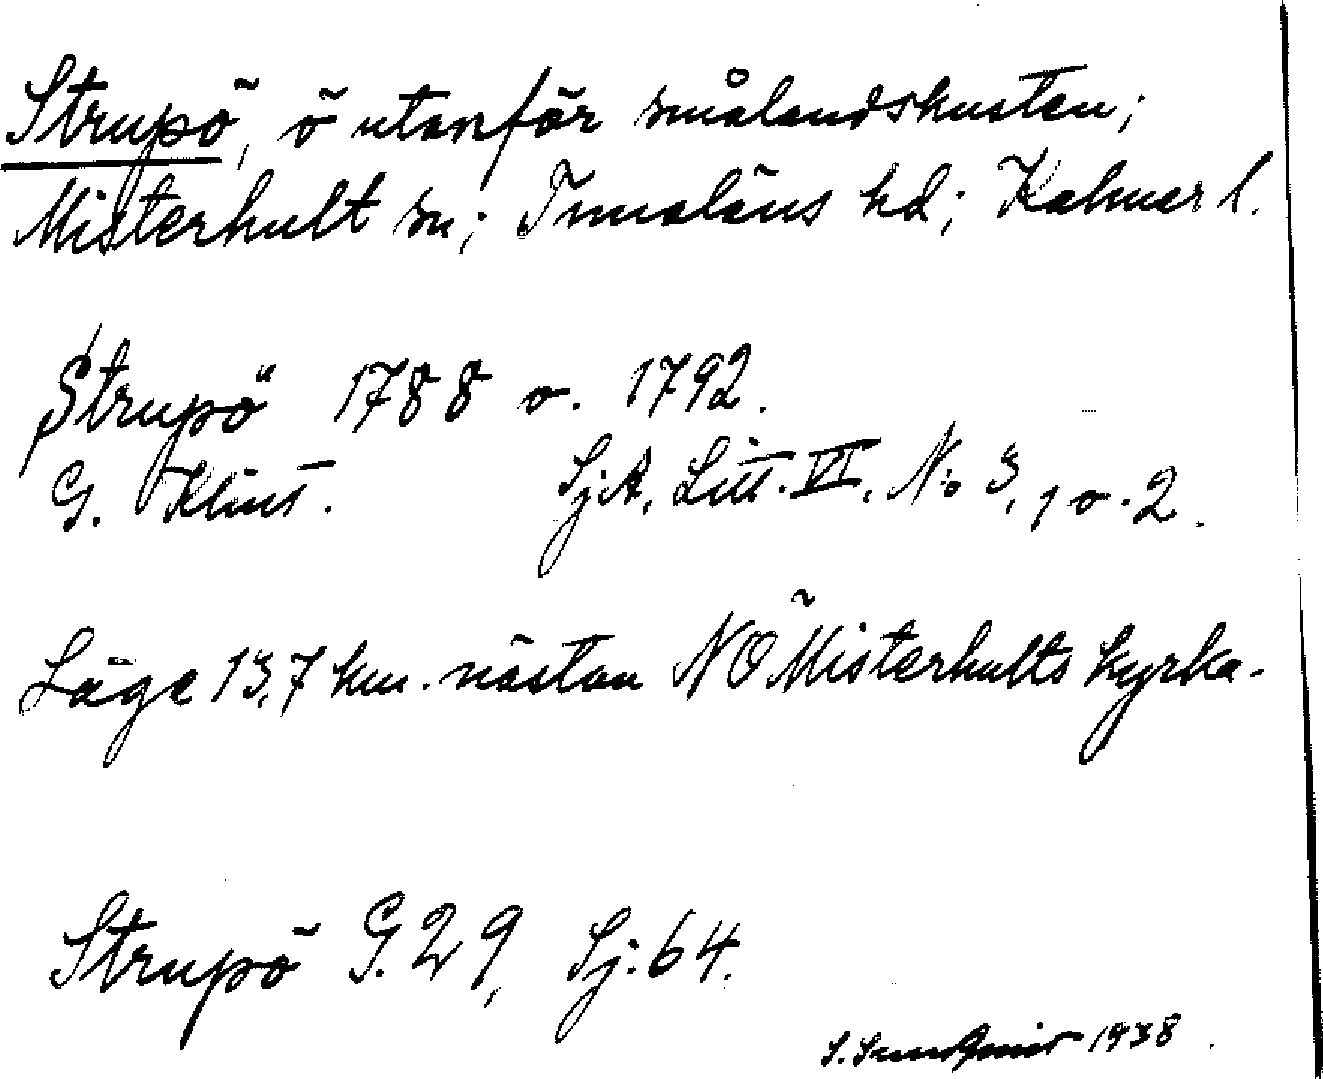 Strupö, ö utanför smålandskusten;
Misterhult sn; Tunaläns hd; Kalmar l.
Strupö 1788 o. 1792.
G. Klint. Sj.A. Litt. VI, No 3, 1 o. 2.
Läge 13,7 km. nästan NO Misterhults kyrka.
Strupö G. 29, Sj: 64.
1938.